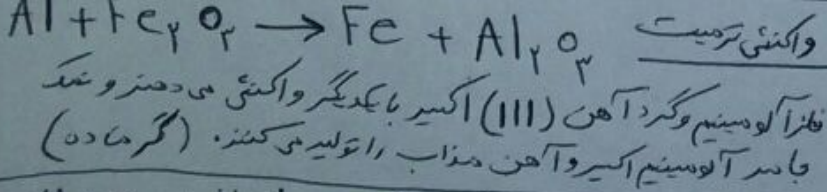 واکنش ترمیت Al + Fe۲O۳ → Fe + Al۲O۳
فلز آلومینیم و گرد آهن (III) اکسید با یکدیگر واکنش می دهند و نمک
جامد آلومینیم اکسید و آهن مذاب را تولید می کنند. (گرماده)